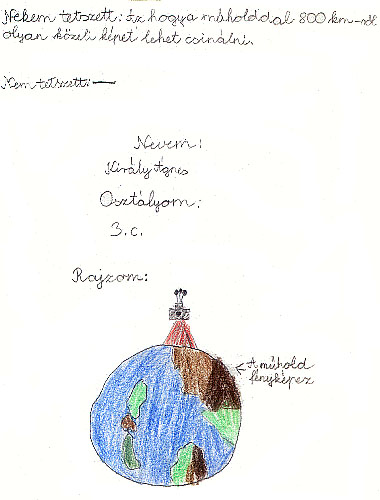 Nekem tetszett: Az hogy a műholddal 800 km-ről
olyan közeli képet lehet csinálni.
Nem tetszett: —
Nevem:
Király Ágnes
Osztályom:
3.c.
Rajzom:
A műhold
fényképez